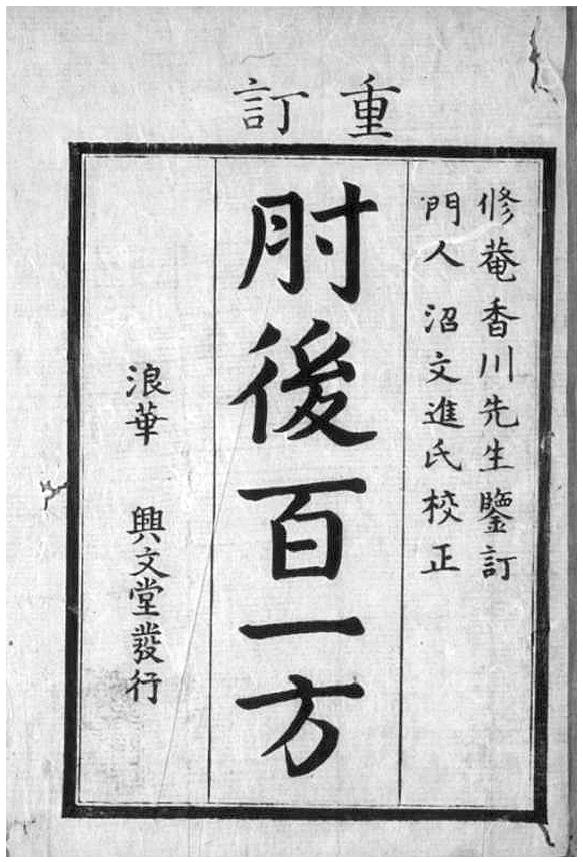 重訂
修菴香川先生鑒訂
門人 沼文進氏校正
肘後百一方
浪華 興文堂發行